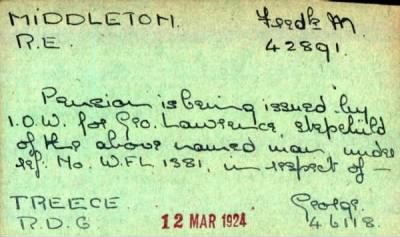 MIDDLETON. Fredk M
R.E. 42891.
Pension is being issued by
I.O.W. for Geo. Lawrence, stepchild
of the above named man, under
ref. No. W.F.L 1381, in respect of —
TREECE George.
R.D.G 46118.
12 MAR 1924